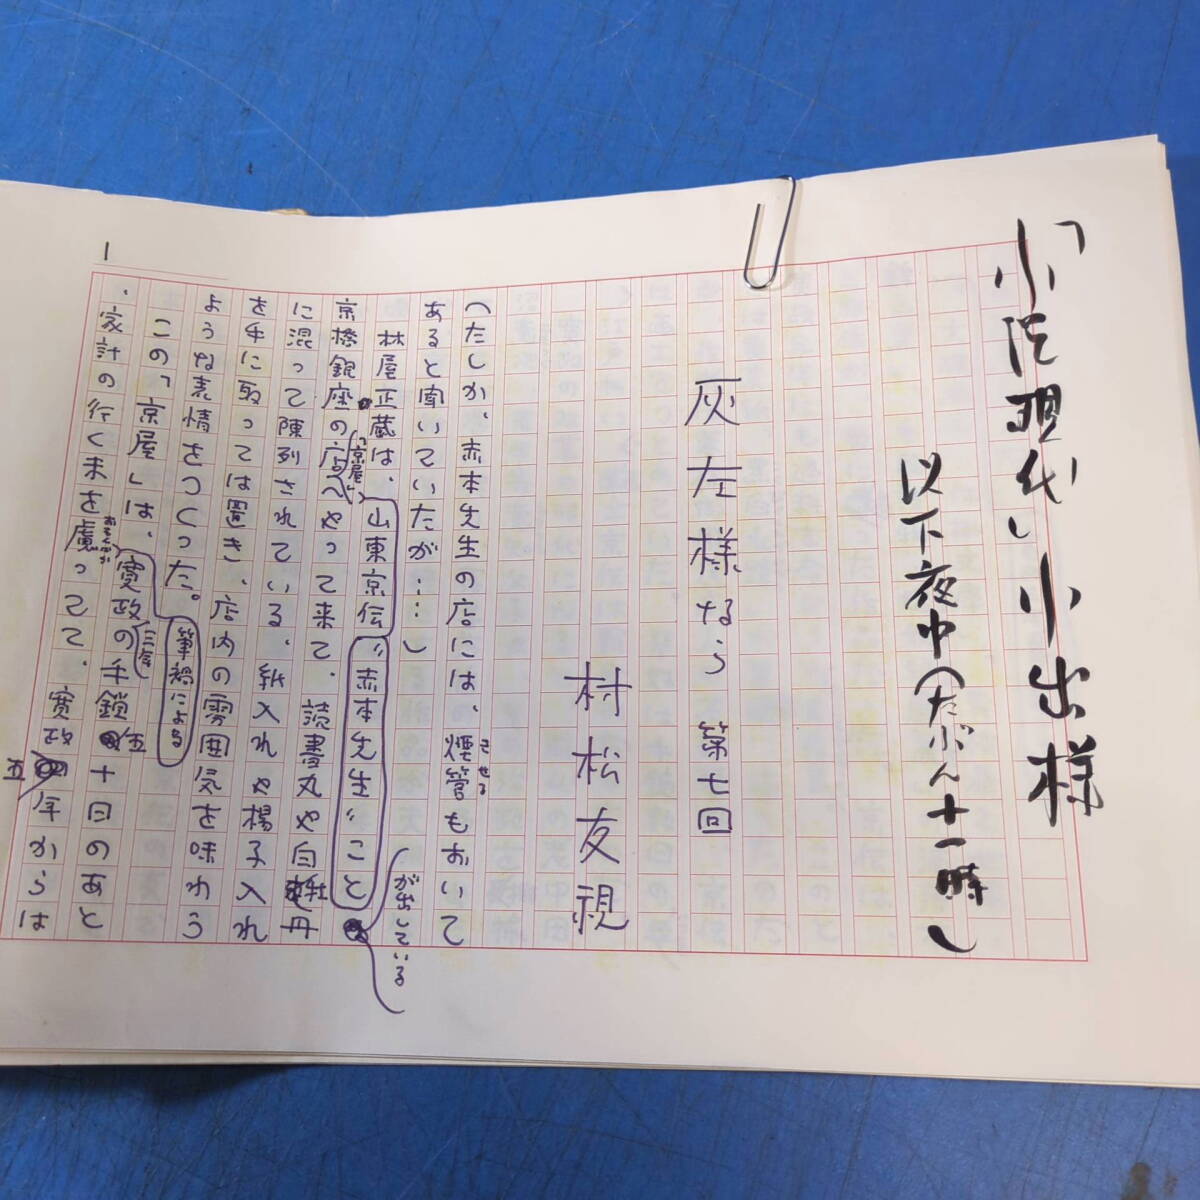 「小説現代」小出様
以下夜中(たぶん十一時)
灰左様なら 第七回
村松友視
(たしか、赤本先生の店には、煙管もおいて
きせる
あると聞いていたが……)
林屋正蔵は、山東京伝〝赤本先生〟こと
が出している
京橋銀座の店へやって来て、読書丸や白牡丹
「京屋」
に混って陳列されている、紙入れや楊子入れ
を手に取っては置き、店内の雰囲気を味わう
ような表情をつくった。
この「京屋」は、筆禍による寛政の手鎖五十日のあと
三年
、家計の行く末を慮って、寛政五年からは
おもんぱか
1